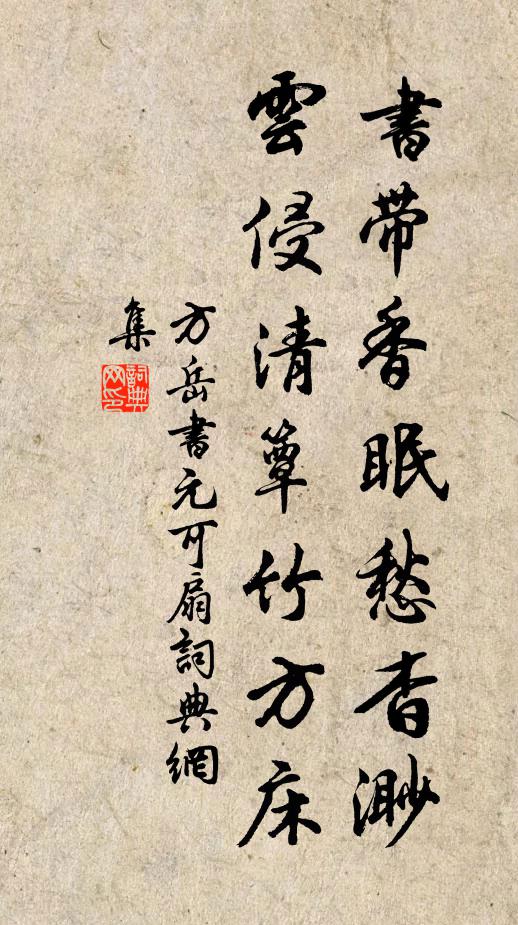 書帶香眠愁杳渺
雲侵清簟竹方床
方岳書元可扇詞典網
集
詞典網印